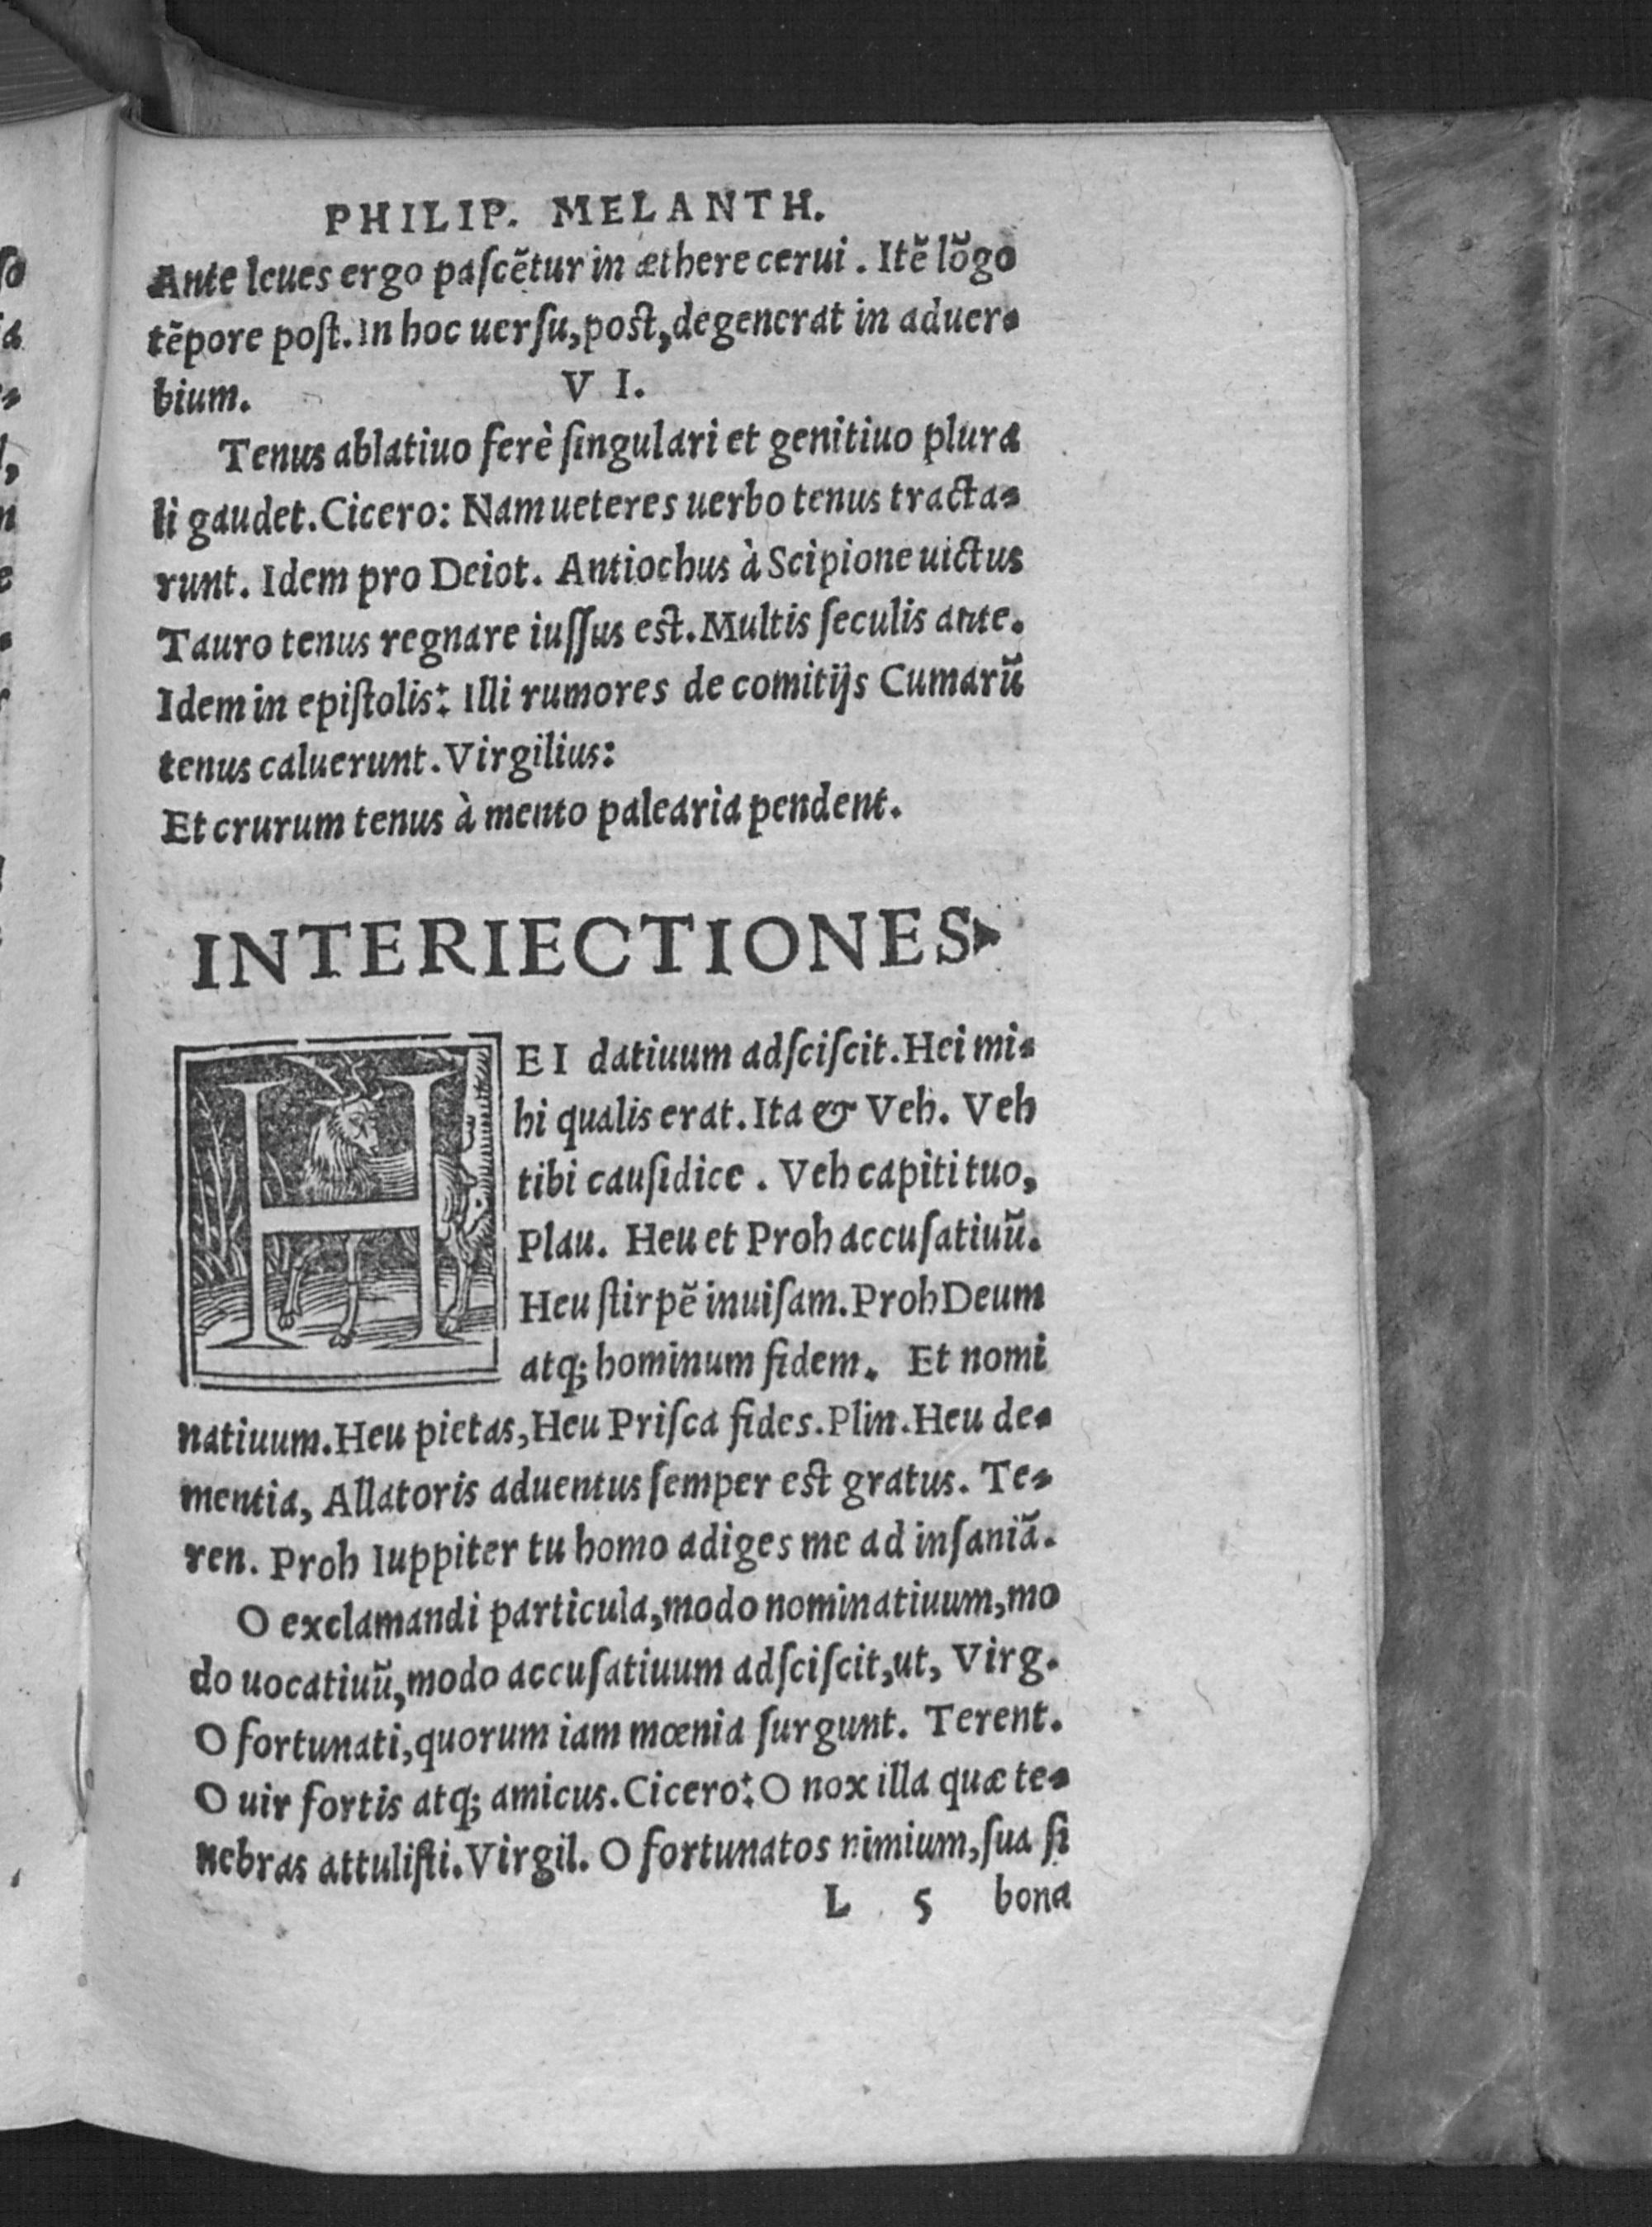 PHILIP. MELANTH.
Ante leues ergo paſcẽtur in æthere cerui. Itẽ lõgo
tẽpore poſt. In hoc uerſu, poſt, degenerat in aduer-
bium. V I.
Tenus ablatiuo ferè ſingulari et genitiuo plura
li gaudet. Cicero: Nam ueteres uerbo tenus tracta-
runt. Idem pro Deiot. Antiochus à Scipione uictus
Tauro tenus regnare iuſſus eſt. Multis ſeculis ante.
Idem in epiſtolis: Illi rumores de comitijs Cumarũ
tenus caluerunt. Virgilius:
Et crurum tenus à mento palearia pendent.
INTERIECTIONES
HEI datiuum adſciſcit. Hei mi-
hi qualis erat. Ita & Veh. Veh
tibi cauſidice. Veh capiti tuo,
Plau. Heu et Proh accuſatiuũ.
Heu ſtirpẽ inuiſam. Proh Deum
atq; hominum fidem. Et nomi
natiuum. Heu pietas, Heu Priſca fides. Plin. Heu de-
mentia, Allatoris aduentus ſemper eſt gratus. Te-
ren. Proh Iuppiter tu homo adiges me ad inſaniã.
O exclamandi particula, modo nominatiuum, mo
do uocatiuũ, modo accuſatiuum adſciſcit, ut, Virg.
O fortunati, quorum iam mœnia ſurgunt. Terent.
O uir fortis atq; amicus. Cicero: O nox illa quæ te-
nebras attuliſti. Virgil. O fortunatos nimium, ſua ſi
L 5 bona